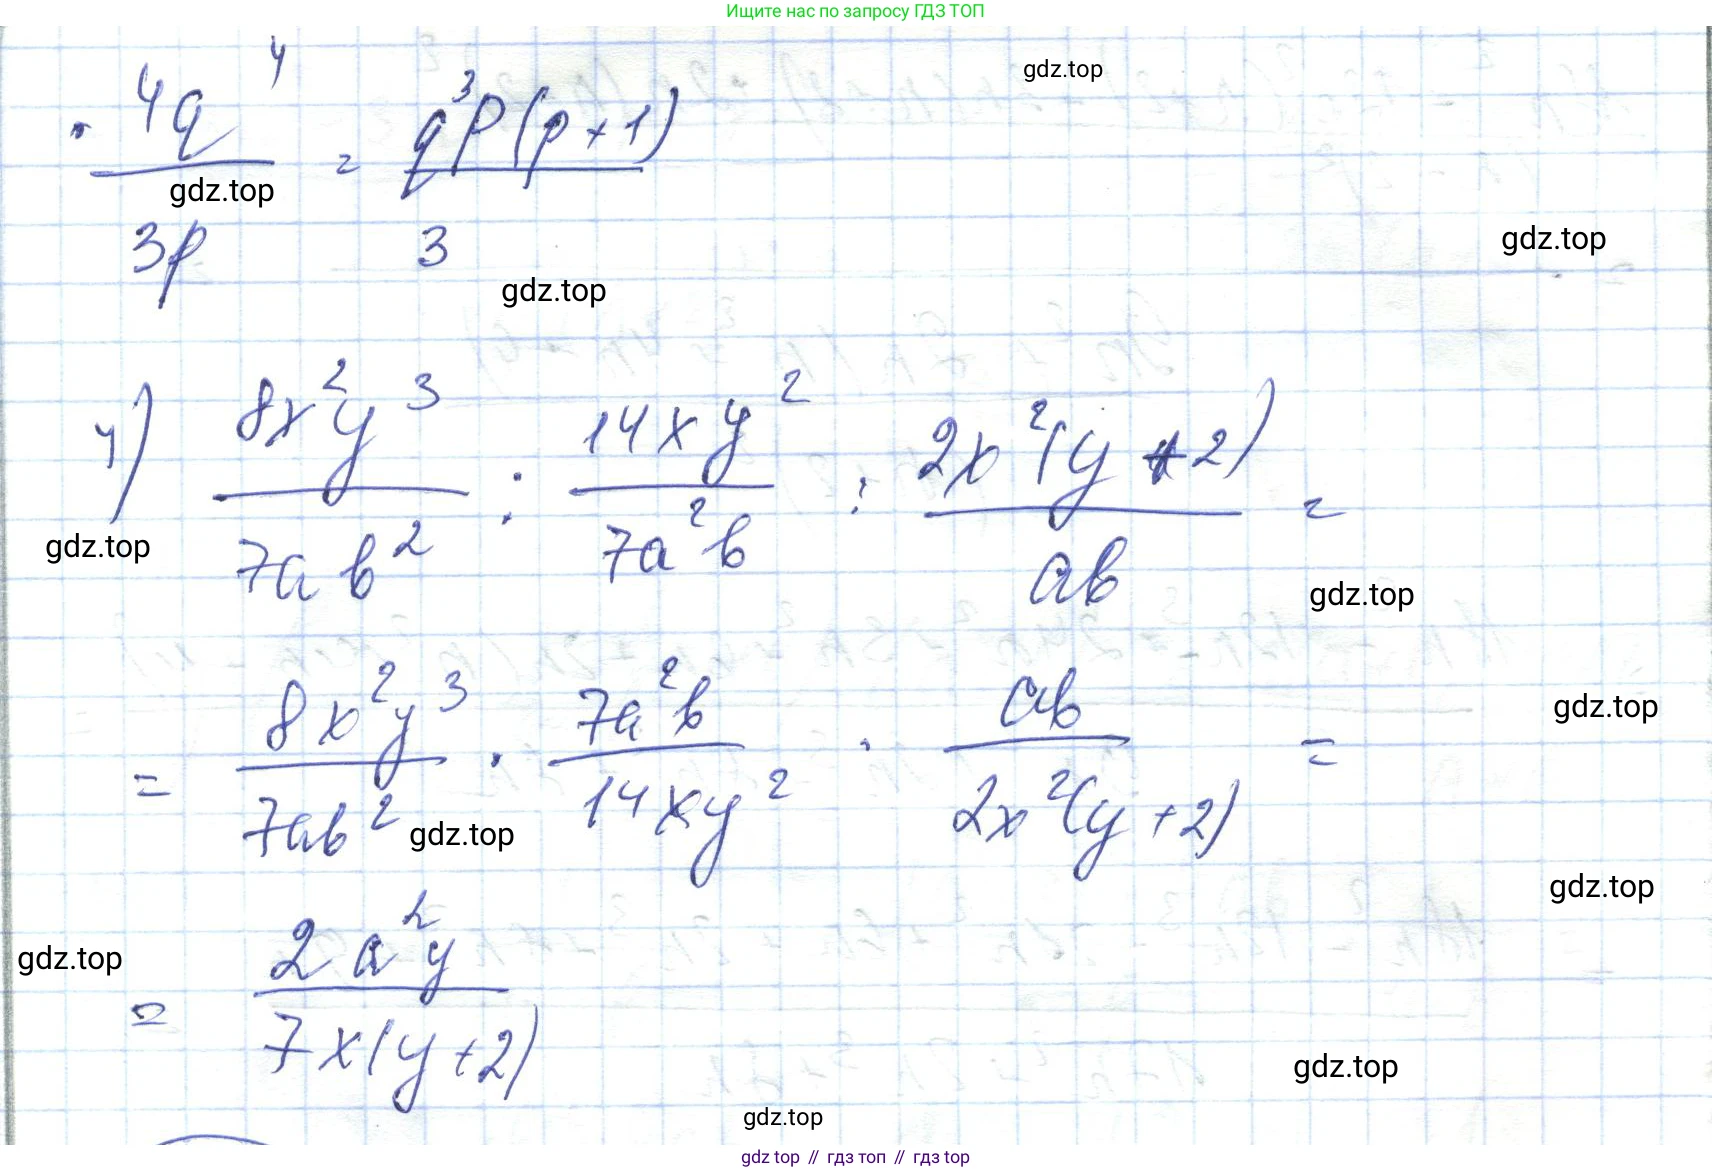 Ищите нас по запросу ГДЗ ТОП
gdz.top
· 4q⁴/3p = q³p(p+1)/3
gdz.top
gdz.top
gdz.top
4) 8x²y³/7ab² : 14xy²/7a²b : 2x²(y+2)/ab =
gdz.top
gdz.top
= 8x²y³/7ab² · 7a²b/14xy² · ab/2x²(y+2) =
gdz.top
gdz.top
gdz.top
= 2a²y/7x(y+2)
gdz.top
gdz.top
gdz.top
gdz top // гдз топ // гдз top